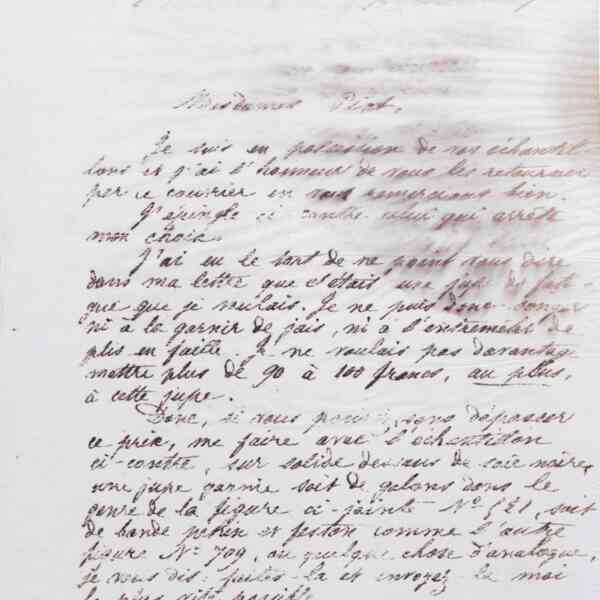 Mesdames Piot,
Je suis en possession de vos échantil
lons et j'ai l'honneur de vous les retourner
par ce courrier en vous remerciant bien.
J'épingle ci contre celui qui arrête
mon choix.
J'ai eu le tort de ne point vous dire
dans ma lettre que c'était une jupe de
que que je voulais. Je ne puis donc songer
ni à la garnir de jais, ni à l'entremêler de
plis en faille. Je ne voulais pas davantage
mettre plus de 90 à 100 francs, au plus,
à cette jupe.
Donc, si vous pouvez, sans dépasser
ce prix, me faire avec l'échantillon
ci-contre, sur solide dessous de soie noire,
une jupe garnie soit de galons dans le
genre de la figure ci-jointe No soit
de bande pékin et feston comme l'autre
figure No 709, ou quelque chose d'analogue,
je vous dis: faites-la et envoyez-la moi
le plus vite possible